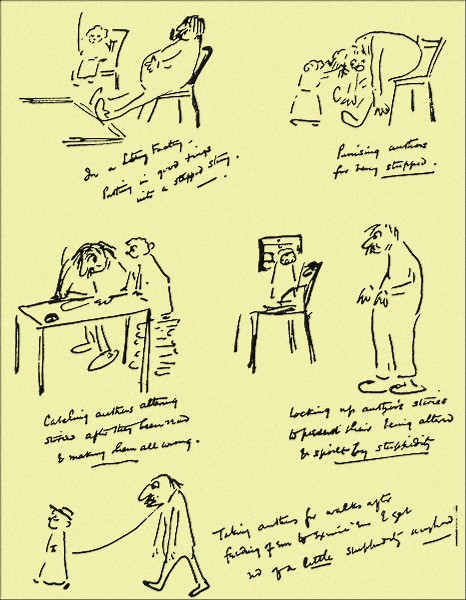 In a Story Factory.
Putting in good things
into a stupped story.
Punising authors
for being stupped.
Catching authors altering
stories after they been read
& making them all wrong.
Locking up author's stories
to prevent their being altered
& spoilt by stuppidity
Taking authors for walks after
feeding of em to exercise em & get
rid of a little stuppidity